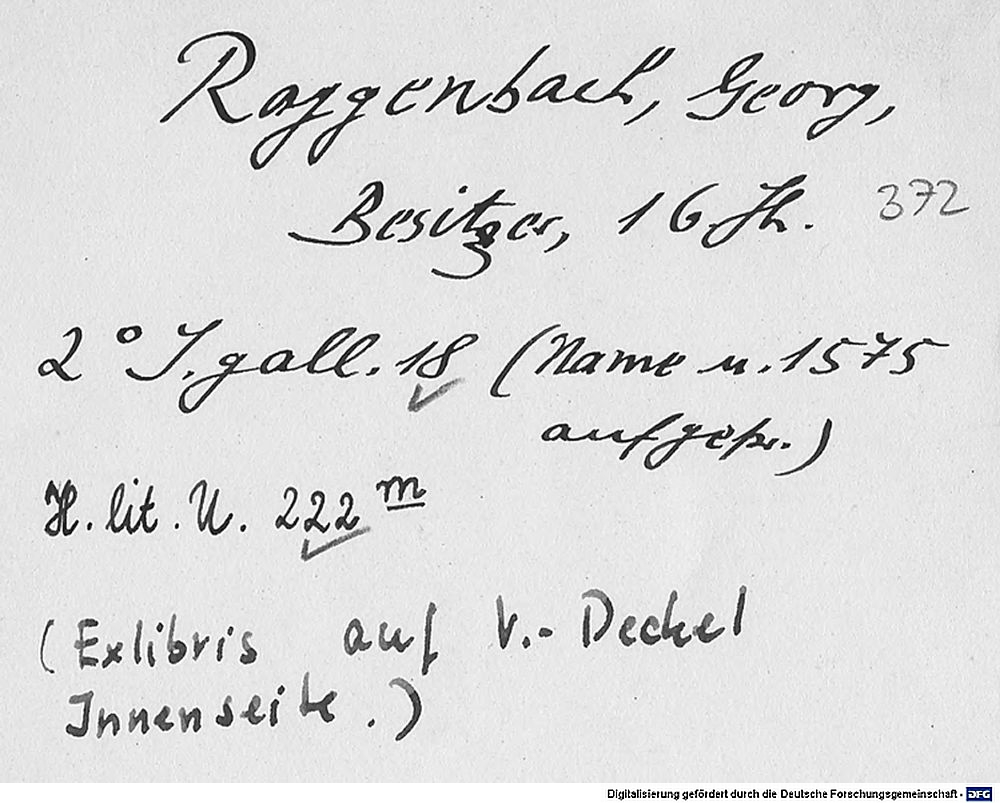 Roggenbach, Georg,
Besitzer, 16. Jh. 372
2° J. gall. 18 (Name u. 1575
aufgepr.)
H. lit. U. 222 m
(Exlibris auf V.-Deckel
Innenseite.)
Digitalisierung gefördert durch die Deutsche Forschungsgemeinschaft - DFG